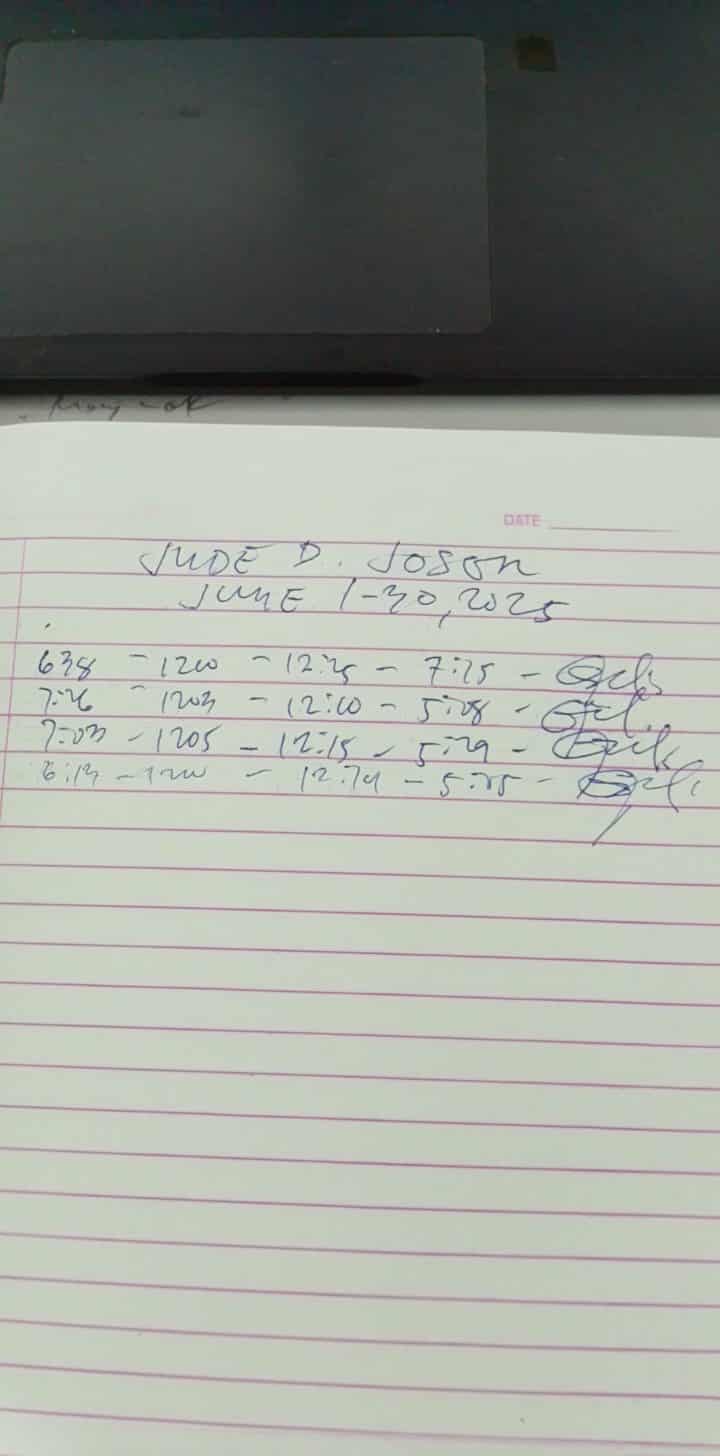 DATE
JUDE D. JOSON
JUNE 1-30, 2025
638 - 1200 - 12:25 - 7:25 -
7:26 - 1203 - 12:10 - 5:08 -
7:03 - 1205 - 12:15 - 5:29 -
6:13 - 1200 - 12:24 - 5:25 -